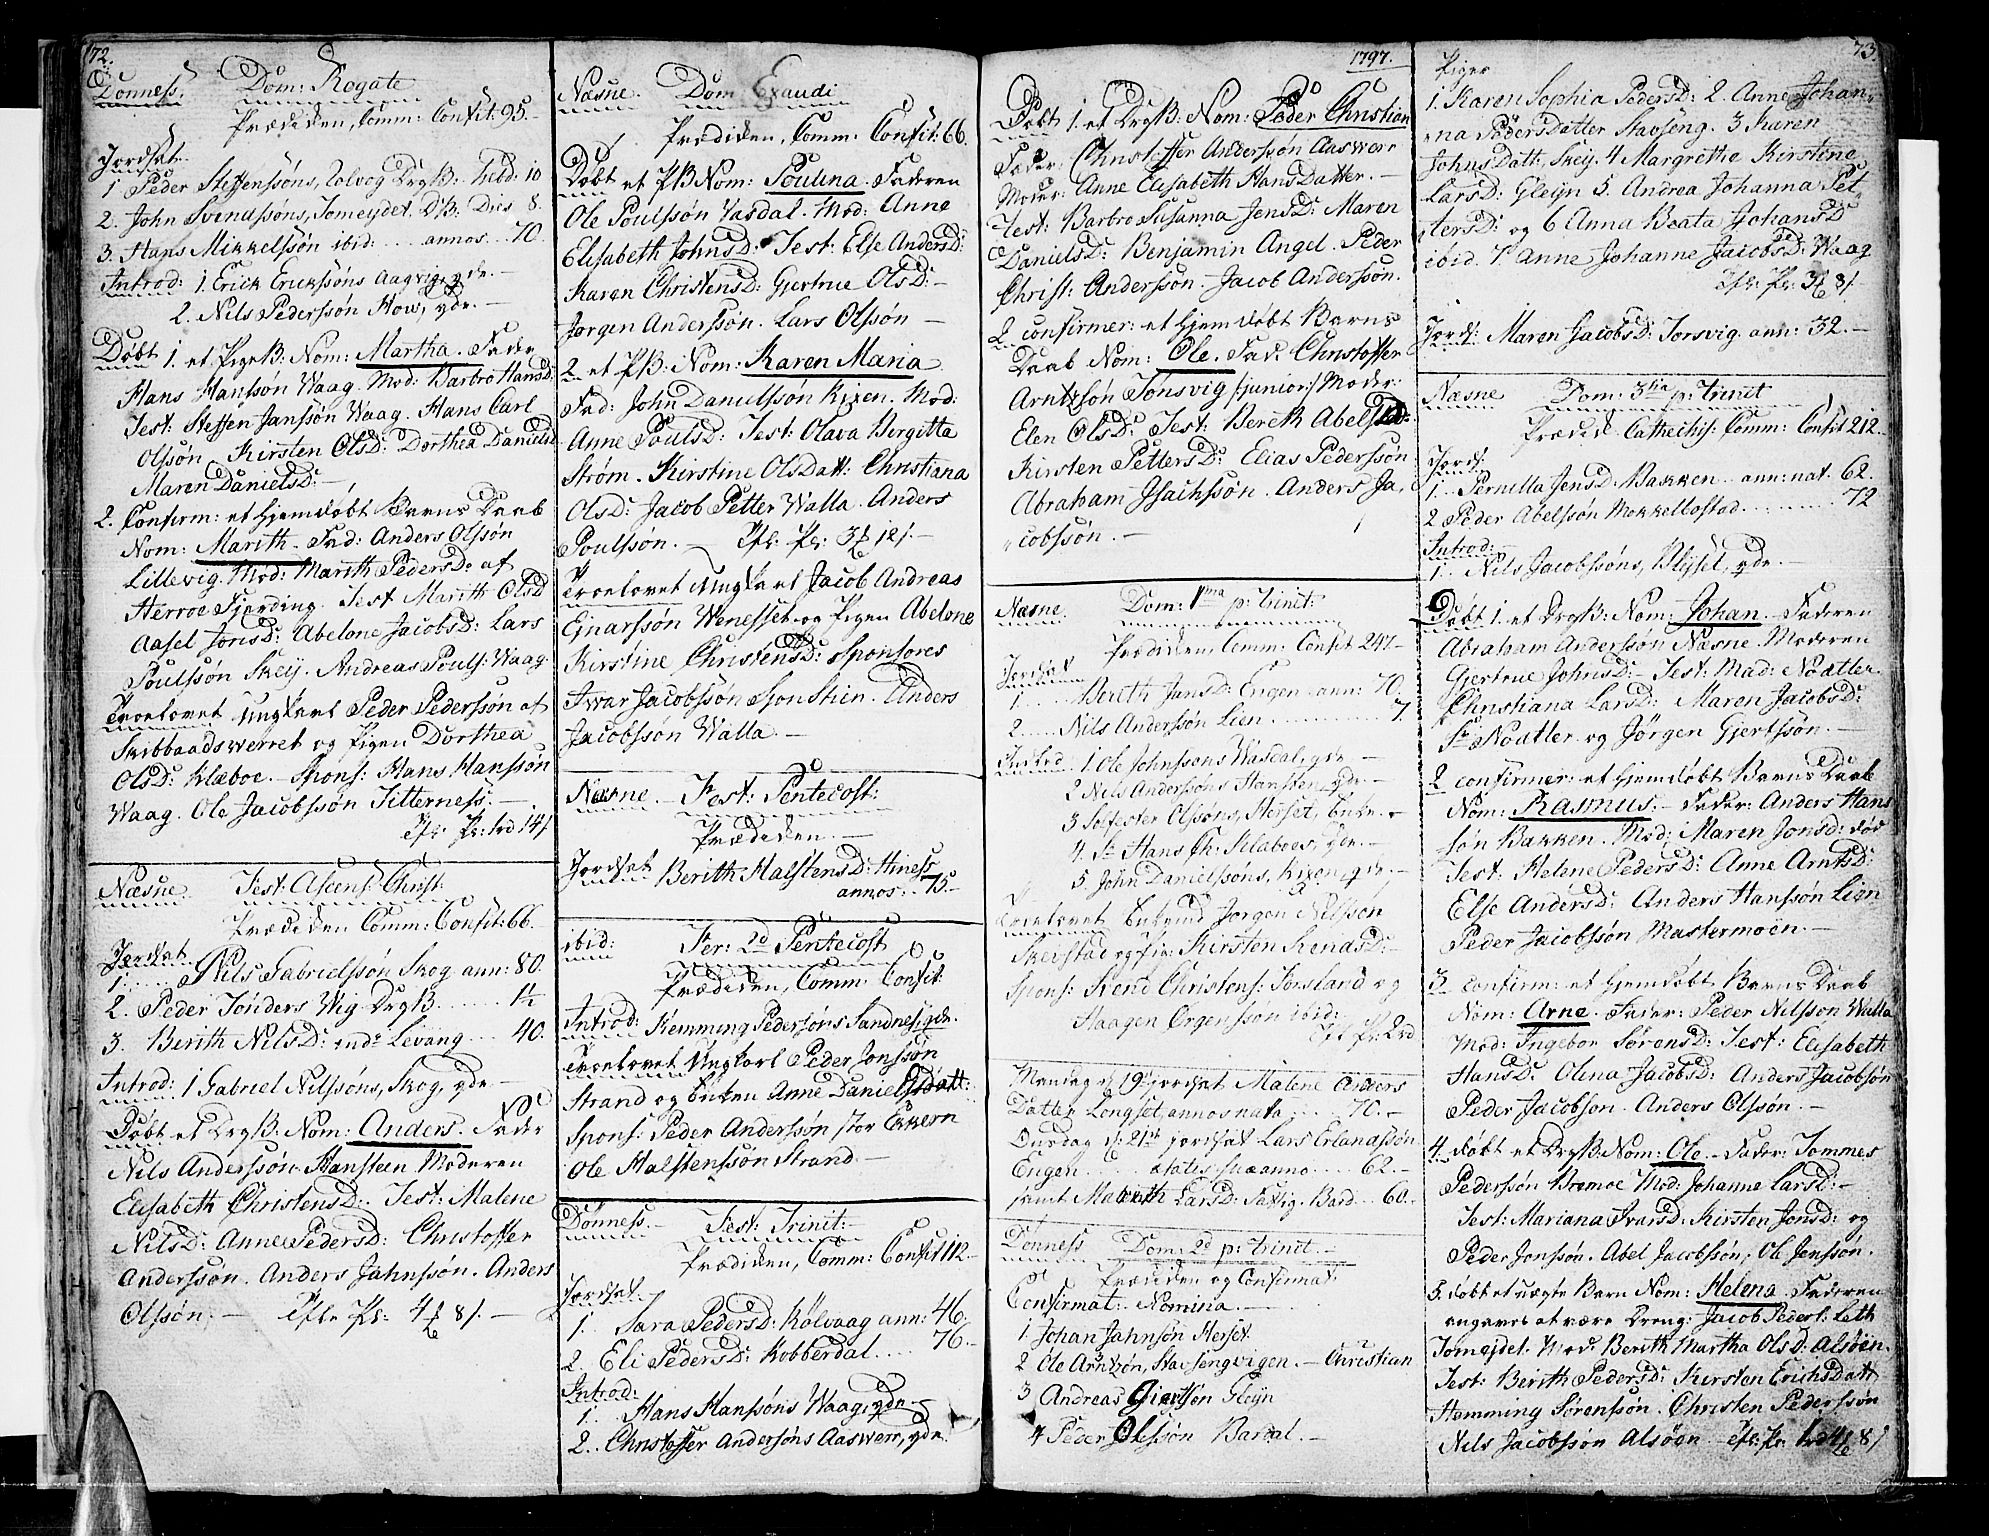 72.
Dønness. Dom: Rogate
Prædiken, Comm: Confit: 95.
Jordsat
1. Peder Steffenssöns, Solvog DrgB: Hebd: 10
2. John Svenssöns, Tomeydet DB: Dies 8.
3. Hans Mikkelssön ibid: .... annos .. 70.
Introd: 1. Erick Erickssöns Aagvig, gde. —
2. Nils Pederssön How, gde. —
Døbt 1. et PigeB: Nom: Martha. Fader
Hans Hanssön Waag. Mod: Barbro HansD:
Test: Steffen Janssön Waag. Hans Carl
Olssön. Kirsten OlsD: Dorthea Daniels
Maren DanielsD: —
2. Confirm: et hjemdøbt Barns Daab
Nom: Marith. Fad: Anders Olssön
Lillevig. Mod: Marith PedersD: af
Herroe Fjerding. Test Marith OlsD
Aasel JonsD: Abelone JacobsD: Lars
Poulssön Skeij. Andreas Pouls: Waag.
Troelovet Ungkarl Peder Pederssön af
Skibbaadsværret og Pigen Dorthea
OlsD: Klæboe. Spons: Hans Hanssön
Waag. Ole Jacobssön Titterness. —
Ofr: Pr: 1rd 14 s
Næsne Fest: Ascens: Christ:
Prædiken Comm: Confit: 66.
Jordsat
1. .... Nils Gabrielssön Skog ann: 80.
2. Peder Tönders Wig DrgB. ..... 1½
3. Berith NilsD: Levang .... 40.
Introd: 1 Gabriel Nilssöns, Skog, gde —
Døbt et DrgB: Nom: Anders. Fader
Nils Anderssön Hansteen Moderen
Elisabeth ChristensD: Test: Malene
NilsD: Anne PedersD: Christoffer
Anderssön. Anders Jahnssön. Anders
Olssön. — Ofr: Pr: 4 8 s. —
Næsne Dom Exaudi
Prædiken, Comm: Confit: 66.
Døbt et PB Nom: Poulina. Faderen
Ole Poulssön Vasdal. Mod: Anne
Elisabeth JohnsD: Test: Else AndersD:
Karen ChristensD: Gjertrue OlsD: —
Jörgen Anderssön. Lars Olssön —
2 et PB: Nom: Karen Maria
Fad: John Danielssön Rixen. Mod:
Anne PoulsD: Test: Olava Birgitta
Ström. Kirstine OlsDatt: Christiana
OlsD: Jacob Petter Walla. Anders
Poulssön. — Ofr: Pr: 3 12 s. —
Troelovet Ungkarl Jacob Andreas
Ejnarssön Wenesset og Pigen Abelone
Kirstine ChristensD: Sponsores
Iwar Jacobssön Sjonstien. Anders
Jacobssön Walla —
Næsne — Fest: Pentecost:
Prædiken. —
Jordsat Berith HalstensD: Hiness
annos .. 75 —
ibid: Fer: 2d Pentecost
Prædiken, Comm: Confit:
Introd: Hemming Pederssöns Sandnes, gde.
Troelovet Ungkarl Peder Jonssön
Strand og Enken Anne DanielsDatt:
Spons: Peder Anderssön stor Ekkern
Ole Halstenssön Strand —
Dønness. — Fest: Trinit: —
Prædiken, Comm: Confit 112 —
Jordsat
1. Sara PedersD: Kölvaag ann: 46.
2. Eli PedersD: Kobberdal .... 76. —
Introd:
1. Hans Hanssöns Waag, gde —
2. Christoffer Anderssöns Aaswerr, gde
1797.
Døbt 1. et DrgB: Nom: Peder Christian
Fader Christoffer Anderssön Aaswær
Moder Anne Elisabeth HansDatter. —
Test: Barbro Susanna JensD: Maren
DanielsD: Benjamin Angel. Peder
Christ: Anderssön. Jacob Anderssön.
2 confirmer: et hjemdøbt Barns
Daab Nom: Ole. Fad: Christoffer
Arntzsön Tönsvig /:junior:/ Moder:
Elen OlsD: Test: Bereth AbelsD:
Kirsten PettersD: Elias Pederssön
Abraham Isachssön. Anders Ja,
,,cobssön. —
Næsne Dom: 1ma p: Trinit:
Prædiken, Comm: Confit 247 —
Jordsat
1. ... Berith JansD: Engen ann: 70.
2 .... Nils Anderssön Lien ........ 7.
Introd 1. Ole Johnssöns Wasdal, gde —
2 Nils Anderssöns Hansteen, gde —
3 Solfester Olssöns, Herset, Enke. —
4. Sr Hans Ch: Klaboes, gde. —
5. John Danielssöns, Rixen, gde. —
Troelovet Enkemd Jörgen Nilssön
Skeistad og Kirsten SvendsD: —
Spons: Svend Christens: Tonsland og
Haagen Örgenssön ibid:
Ofr Pr: 2rd
Mandag d. 19de jordsat Malene Anders
Datter Longset, annos nata .... 70. —
Onsdag d: 21st jordsat Lars Erlandssön
Engen .... ætatis suæ anno .... 62. —
samt Mareth LarsD: Fattig. Bard .. 60. —
Dønness Dom: 2d p: Trinit: —
Prædiken og Confirmat:
Confirmat: Nomina. —
1 Johan Jahnsön Herset
2 Ole Arntzön, Stavsengvigen. — Christian
3 Andreas Giertsön Gleijn
4 Peder Olssön Bardal —
73.
Piger
1. Karen Sophia PedersD: 2. Anne Johan,
,,na PedersDatter Stavseng. 3 Karen
JohnsDatt, Skeij. 4 Margrethe Kirstine
LarsD: Gleijn 5. Andrea Johanna Pet,
,,tersD: og 6 Anna Beata JohansD
ibid. 7. Anne Johanne JacobsD: Waag
Ofr: Pr: 3 8 s
Jords: Maren JacobsD: Torsvig. ann: 32. —
Næsne Dom: 3tia p: Trinit
Prædik. Catechis: Comm: Confit 212.
Jords:
1. Pernilla JensD. Bakken ann: nat. 62.
2 Peder Abelssön Mokkelbostad ........ 72
Introd: —
1. Nils Jacobssöns, Blijsel, gde. —
Døbt 1. et DrgB: Nom: Johan. Faderen
Abraham Anderssön Næsne. Moderen
Gjertrue JohnsD: Test: Mad: Nodtler
Christiana LarsD: Maren JacobsD:
Sr Nodtler og Jörgen Gjertssön. —
2 confirmer: et hjemdøbt Barns Daab
Nom: Rasmus. — Fader: Anders Hans
sön Bakken. Mod: Maren JonsD: død
Test: Helene PedersD: Anne ArntsD:
Else AndersD: Anders Hanssön Lien
Peder Jacobssön Mastermoen. —
3. confirm: et hjemdøbt Barns Daab
Nom: Arne. Fader: Peder Nilsson Walla
Mod: Ingebor SörensD: Test: Elisabeth
HansD: Olina JacobsD: Anders Jacobsön
Peder Jacobsön. Anders Olssön. —
4. døbt et DrgB: Nom: Ole. — Fader: Tommes
Pederssön Bremoe Mod: Johanne LarsD: —
Test: Mariana IvarsD: Kirsten JonsD: og
Peder Jonssön. Abel Jacobssön; Ole Jenssön.
5. døbt et uægte Barn Nom: Helena. Faderen
angaves at være Dreng: Jacob Peders: Leth
Tomejdet. Mod: Berith Martha OlsD: Alsöen.
Test: Berith PedersD: Kersten ErichsDatt
Hemming Sörenssön. Christen Pederssön
Nils Jacobssön Alsöen — Ofr: Pr: 8 s